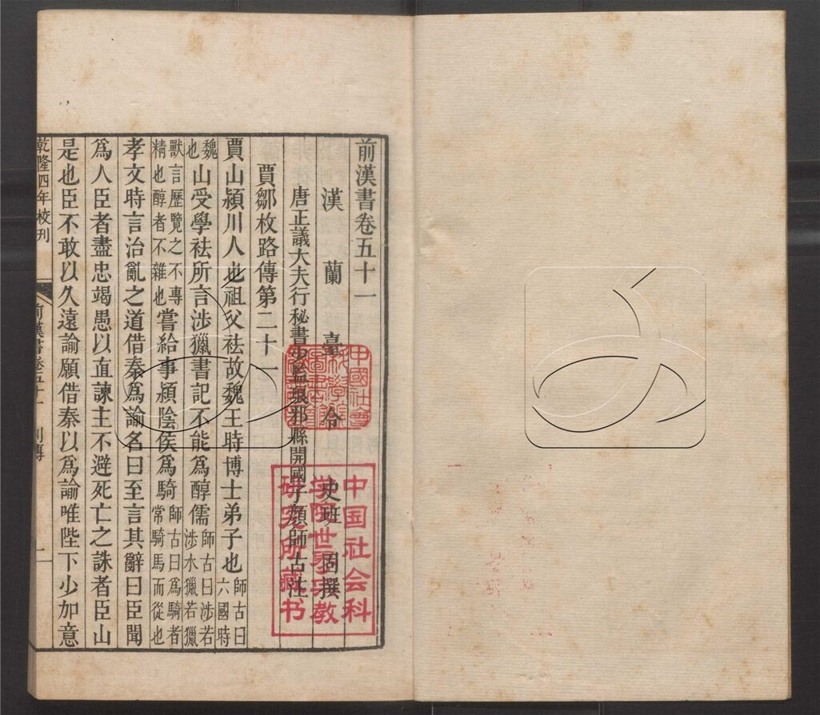 前漢書卷五十一
漢蘭臺令史班固撰
唐正議大夫行秘書少監琅邪縣開國子顏師古注
賈鄒枚路傳第二十一
賈山潁川人也祖父袪故魏王時博士弟子也師古曰六國時
魏也山受學袪所言涉獵書記不能爲醇儒師古曰涉若涉水獵若獵
獸言歷覽之不專精也醇者不雜也嘗給事潁陰侯爲騎師古曰爲騎者常騎馬而從也
孝文時言治亂之道借秦爲諭名曰至言其辭曰臣聞
爲人臣者盡忠竭愚以直諫主不避死亡之誅者臣山
是也臣不敢以久遠諭願借秦以爲諭唯陛下少加意
乾隆四年校刊
前漢書卷五十一
列傳
一
中国社会科
学院世界宗教
研究所藏书